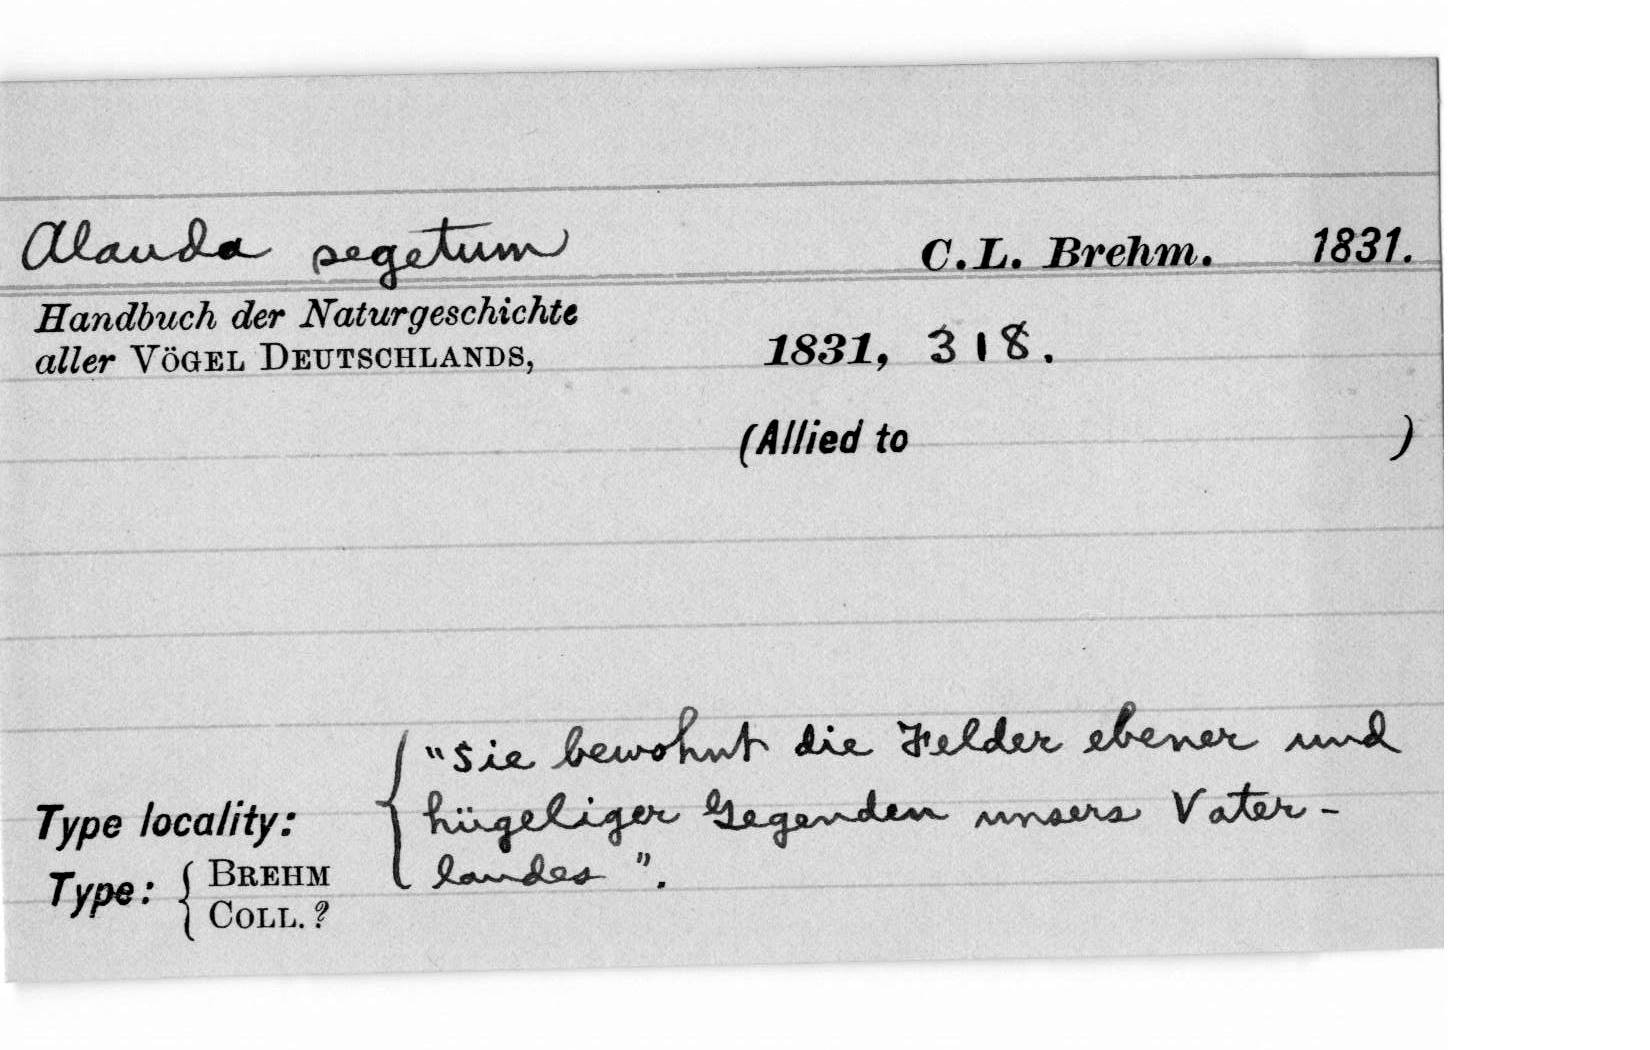 Alauda segetum C.L. Brehm. 1831.
Handbuch der Naturgeschichte
aller VÖGEL DEUTSCHLANDS, 1831, 318.
(Allied to )
"Sie bewohnt die Felder ebener und
Type locality: hügeliger Gegenden unsers Vater-
landes".
Type: BREHM
COLL.?